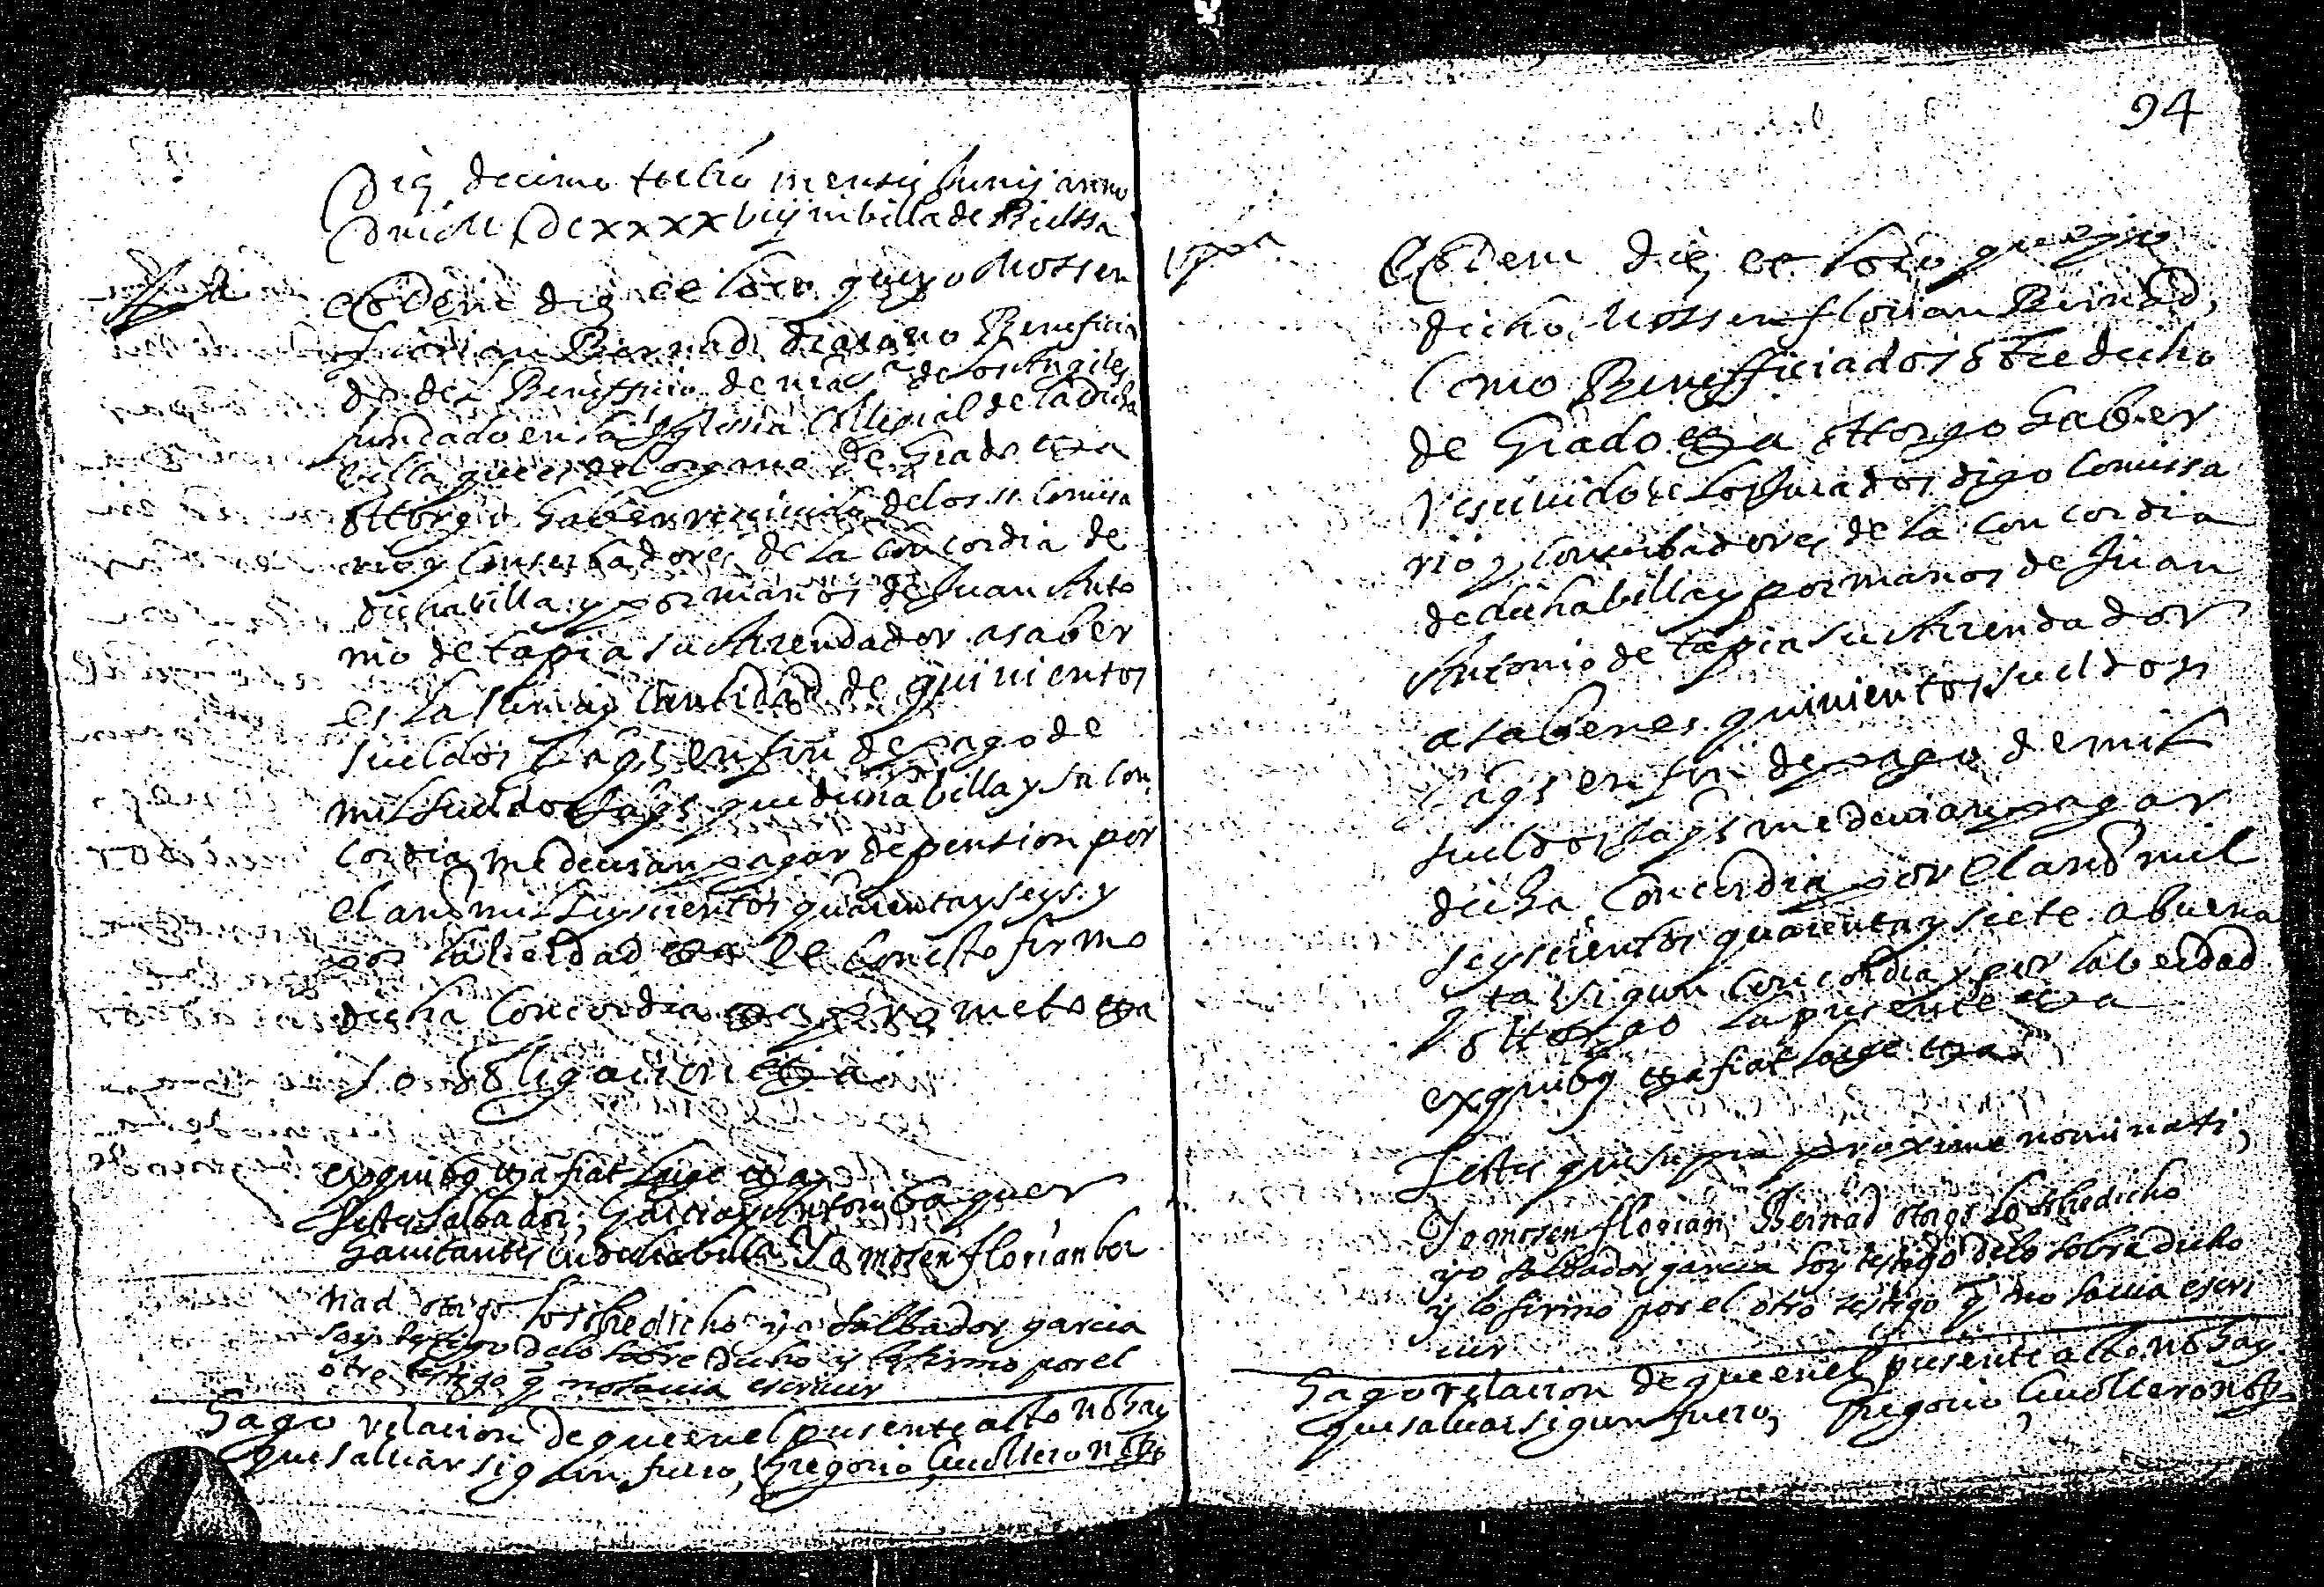 Die decimo tertio mensis Junij anno
Dni M DCXXXXVij in villa de Bielssa
Eodem die et loco que yo Mossen
Florian Bernad diacano Beneficia
do del Beneffiçio de nra Sra de los Angeles
fundado en la Yglesia Collegial de la dicha
billa que es del orgue de Grado etza
ottorgo haber reciuido delos ss comisa
rio y conserbadores de la concordia de
dicha billa y por manos de Juan Anto
nio de tapia su Arrendador asaber
es la suma y cantidad de quinientos
sueldos Jaqs en fin de pago de
mil sueldos Jaqs que dicha billa y su con
cordia me deuian pagar de pension por
el año mil seyscientos quarenta y seys y
por la berdad etza et con esto firmo
dicha concordia etza prometo etza
so obligacion etza
ex quibq etza fiat large etza
Testes Salbador Garcia y Anton Baquer
hauitantes en dicha billa Yo mosen florian ber
nad otorgo lo sobredicho yo salbador garcia
soy testigo delo sobre dicho y lo firmo por el
otro testigo q no sauia escriuir
Hago relacion de que en el presente acto no hay
que saluar sigun fuero, Gregorio not
94
Eodem die et loco que yo
dicho Mossen florian Bernad,
como Benefficiado sobredicho
de Grado etza ottorgo haber
resciuido de los Jurados digo comissa
rio y conserbadores de la concordia
de dicha billa y por manos de Juan
Antonio de tapia su Arrendador
a saber es quinientos sueldos
Jaqs en fin de pago de mil
sueldos Jaqs me deuian pagar
dicha Concordia por el año mil
seyscientos quarenta y siete a buena
qta sigun concordia y por la berdad
ottorgo la presente etza
ex quibq etza fiat large etza
Testes qui supra proxime nominati,
Yo mosen florian Bernad otorgo lo sobredicho
yo salbador garcia soy testigo delo sobre dicho
y lo firmo por el otro testigo q no sauia escri
uir
Hago relacion de que en el presente acto no hay
que saluar sigun fuero, Gregorio not